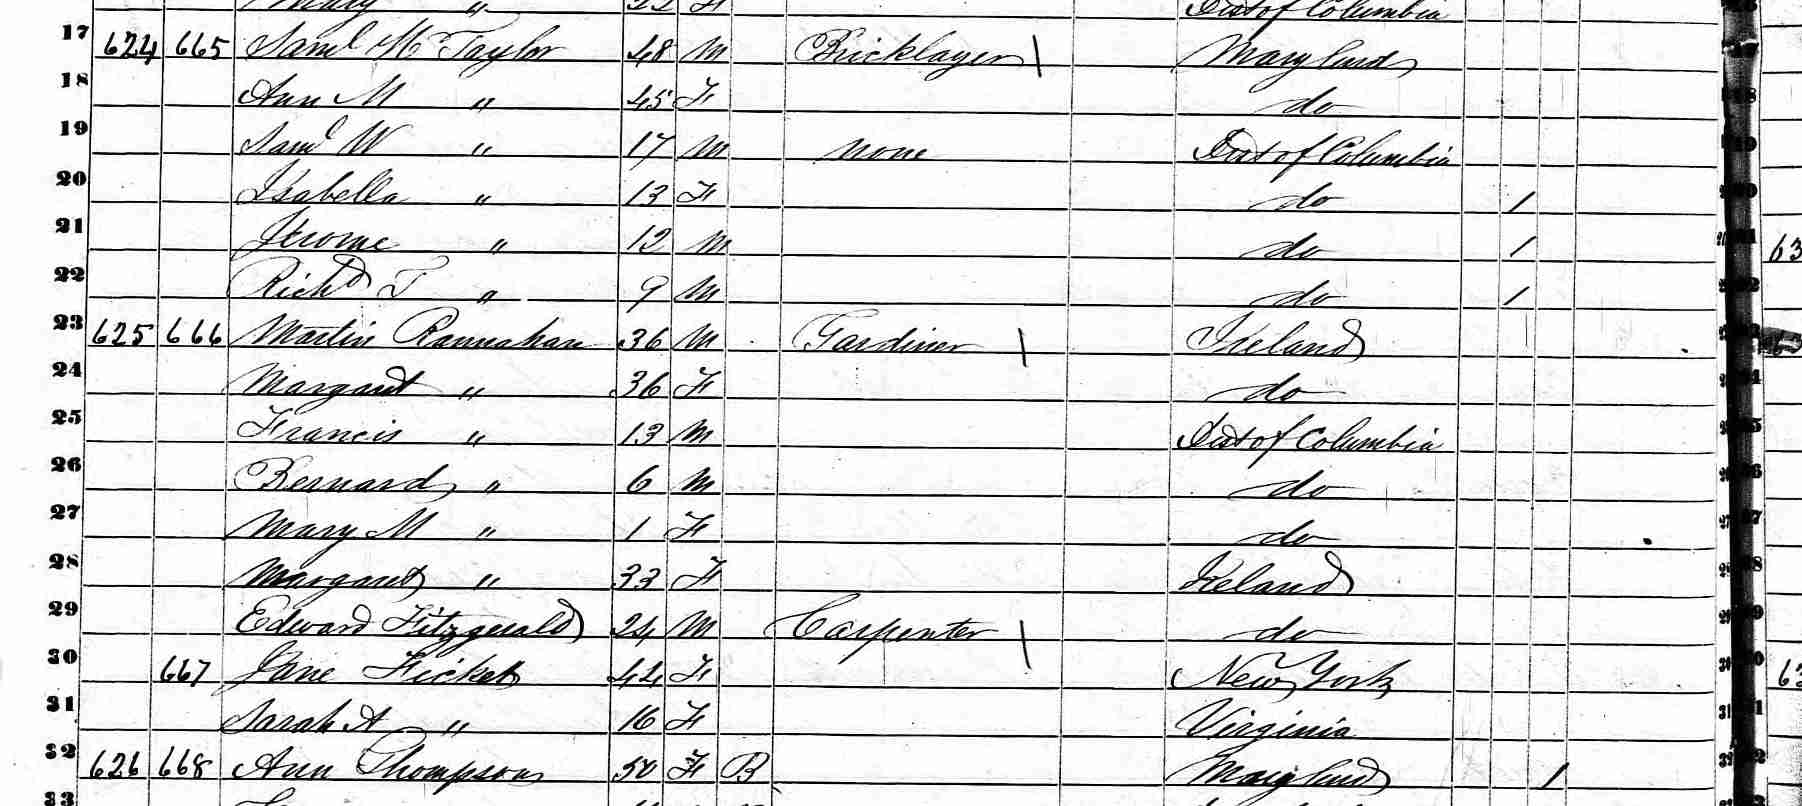 Mary " 22 F Dist of Columbia
17 624 665 Saml Mc Taylor 48 M Bricklayer Maryland
18 Ann M " 45 F do
19 Saml W " 17 M none Dist of Columbia
20 Isabella " 13 F do 1
21 Jerome " 12 M do 1
22 Richd T " 9 M do 1
23 625 666 Martin 36 M Gardiner Ireland
24 Margaret " 36 F do
25 Francis " 13 M Dist of Columbia
26 Bernard " 6 M do
27 Mary M " 1 F do
28 Margaret " 33 F Ireland
29 Edward Fitzgerald 24 M Carpenter do
30 667 Jane Ficket 44 F New York
31 Sarah A " 16 F Virginia
32 626 668 Ann Thompson 50 F B Maryland 1
33